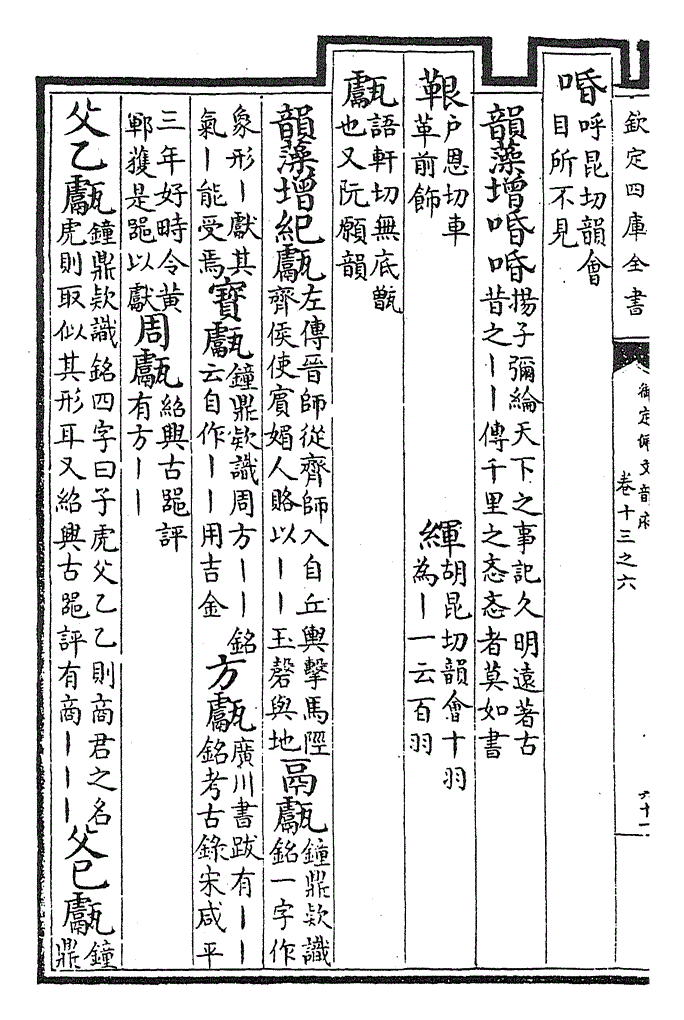 欽定四庫全書
御定佩文韻府
卷十三之六
六十一
㖧
呼昆切韻會
目所不見
韻藻增㖧㖧
揚子彌綸天下之事記久明遠著古
昔之丨丨傳千里之忞忞者莫如書
鞎
户恩切車
革前飾
緷
胡昆切韻會十羽
為丨一云百羽
甗
語軒切無底甑
也又阮願韻
韻藻增紀甗
左傳晉師從齊師入自丘輿擊馬陘
齊侯使賓媚人賂以丨丨玉磬與地
鬲甗
鐘鼎欵識
銘一字作
象形丨獻其
氣丨能受焉
寶甗
鐘鼎欵識周方丨丨銘
云自作丨丨用吉金
方甗
廣川書跋有丨丨
銘考古錄宋咸平
三年好畤令黄
鄆獲是噐以獻
周甗
紹興古噐評
有方丨丨
父乙甗
鐘鼎欵識銘四字曰子虎父乙乙則商君之名
虎則取似其形耳又紹興古噐評有商丨丨丨
父己甗
鐘
鼎